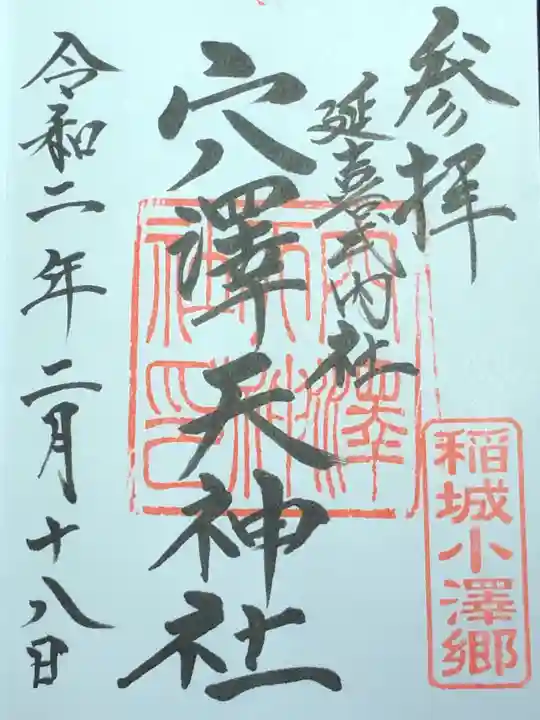 参拝
延喜式内社
穴澤天神社
令和二年二月十八日
穴澤天神社印
稲城小澤郷